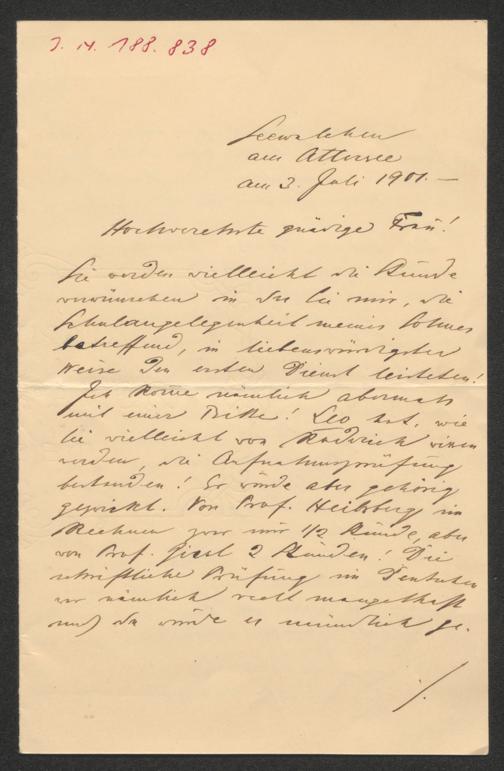 J. N. 188.838
Seewalchen
am Attersee
am 3. Juli 1901. —
Hochverehrte gnädige Frau!
Sie werden vielleicht die Stunde
verwünschen in der Sie mir, die
Schulangelegenheit meines Sohnes
betreffend, in liebenswürdigster
Weise den ersten Dienst leisteten!
Ich komme nämlich abermals
mit einer Bitte! Leo hat, wie
Sie vielleicht von wissen
werden, die Aufnahmsprüfung
bestanden! Er wurde aber gehörig
gezwickt. Von Prof. Heilsberg im
Rechnen zwar nur 1/2 Stunde, aber
von Prof. 2 Stunden! Die
schriftliche Prüfung im Deutschen
war nämlich recht mangelhaft
und da wurde er mündlich ge-
/.